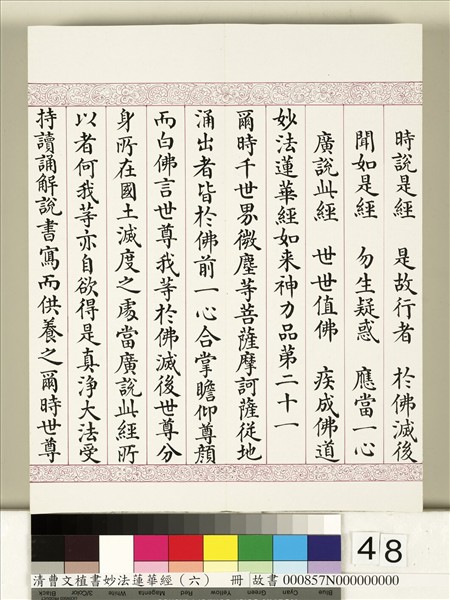 時說是經　是故行者　於佛滅後
聞如是經　勿生疑惑　應當一心
廣說此經　世世值佛　疾成佛道
妙法蓮華經如来神力品苐二十一
爾時千世界微塵等菩薩摩訶薩從地
涌出者皆於佛前一心合掌瞻仰尊顏
而白佛言世尊我等於佛滅後世尊分
身所在國土滅度之處當廣說此經所
以者何我等亦自欲得是真淨大法受
持讀誦解說書寫而供養之爾時世尊
48
Blue Cyan Green Yellow Red Magenta White 3/Color Black
清曹文植書妙法蓮華經（六） 冊 故書 000857N000000000